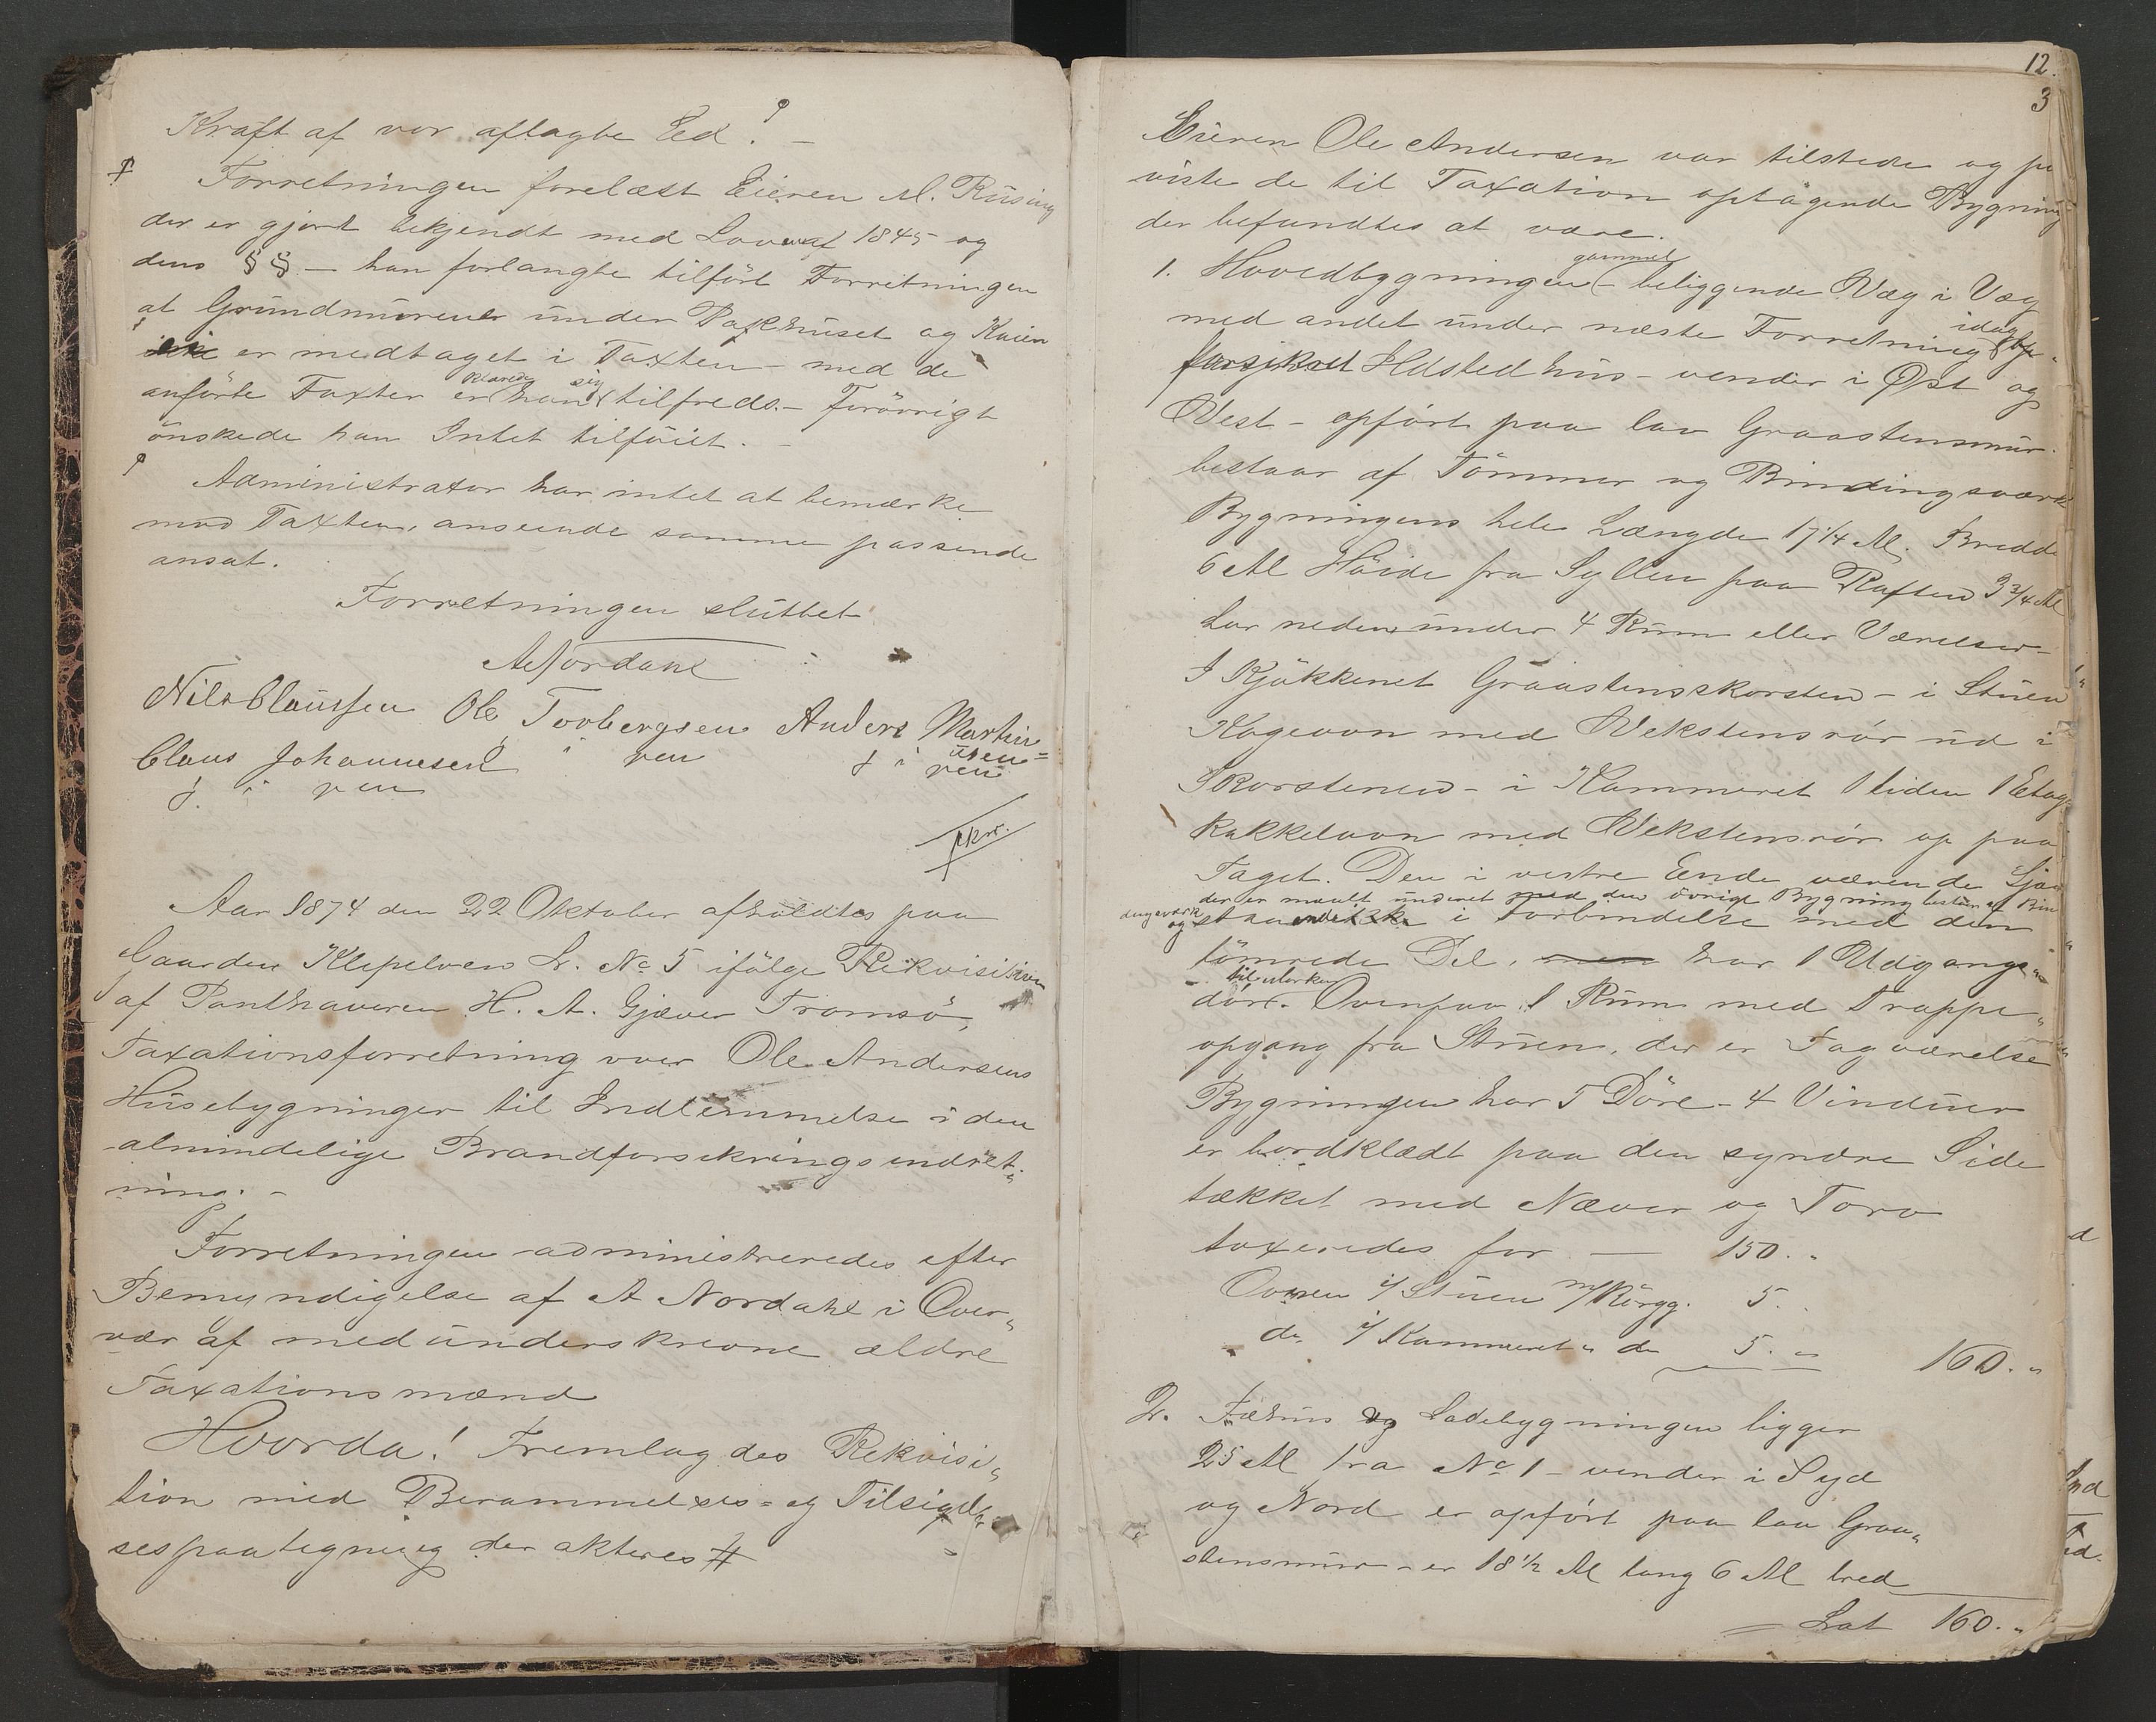 Kraft af vor aflagte Eed. –
Forretningen forelæst Eieren M. Rüsing
der er gjort bekjendt med Loven af 1845 og
dens §§ – han forlangte tilført Forretningen
at Grundmurene under Pakhuset og Kaien
er medtaget i Taxten – med de
anførte Taxter erklærede han sig tilfreds. – Forøvrigt
ønskede han Intet tilføiet. –
Administrator har intet at bemærke
mod Taxten, anseende samme passende
ansat.
Forretningen sluttet
A Nordahl
Nils Claussen Ole Torbergsen Anders Martin=
Claus Johannesen i pen J i usen= pen
J. i pen
Aar 1874 den 22 Oktober afholdtes paa
Gaarden Klepelven L. No 5 ifølge Rekvisition
af Panthaveren H. A. Gjæver Tromsø,
Taxationsforretning over Ole Andersens
Husebygninger til Indlemmelse i den
almindelige Brandforsikringsindret„
ning. –
Forretningen administreredes efter
Bemyndigelse af A Nordahl i Over„
vær af medunderskrevne ældre
Taxationsmænd
Hvorda! Fremlagdes Rekvisi„
tion med Berammelses= og Tilsigel„
sespaategning der akteres #
12.
3
Eieren Ole Andersen var tilstede og pa
viste de til Taxation optagende Bygning
der befundtes at være.
1. Hovedbygningen (gammel – beliggende Væg i Væg
med andet under næste Forretning idag
forsikret Ildstedhus – vender i Øst og
Vest – opført paa lav Graastensmur.
bestaar af Tømmer og Bindingsværk
Bygningens hele Længde 17 1/4 Al. Bredde
6 Al Høide fra Syllen paa Raften 3 3/4 Al
har nedenunder 4 Rum eller Værelser –
I Kjøkkenet Graastensskorsten – i Stuen
Kogeovn med Vekstensrør ud i
Skorstenen – i Kammeret 1 liden 1 Etag
Kakkelovn med Vekstensrør op paa
Taget. Den i vestre Ende værende Sjaa
der er maalt under et med den øvrige Bygning bestaar af Bin
dingsværk og staaende i Forbindelse med den
tømrede Del, men har 1 Udgangs„
dør. Ovenpaa 1 Rum med Trappe„
opgang fra Stuen, der er Tagværelse
Bygningen har 5 Døre – 4 Vinduer
er bordklædt paa den syndre Side
tækket med Næver og Torv
taxeredes for — 150. „
Ovnen i/ Stuen m/ Rørgg. 5. „
do i/ Kammeret „ do 5. „ 160. „
2. Fæhus og Ladebygningen ligger
25 Al fra No 1 – vender i Syd
og Nord er opført paa lav Graa„
stensmur – er 18 1/2 Al lang 6 Al bred
Lat 160. „